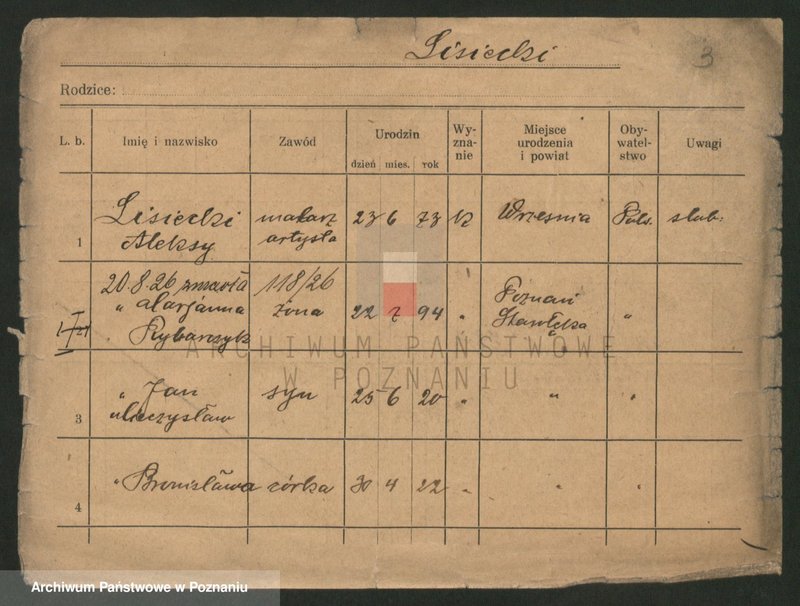 Lisiecki
3
Rodzice:
L. b. Imię i nazwisko Zawód Urodzin Wy-zna-nie Miejsce urodzenia i powiat Oby-watel-stwo Uwagi
dzień mies. rok
1 Lisiecki Aleksy malarz artysta 23 6 73 k Września Pols. ślub.
20.8.26 zmarła 118/26
" Marjanna Rybarczyk żona 22 7 94 " Poznań "
3 " Jan Mieczysław syn 25 6 20 " " "
4 " Bronisława córka 30 4 22 " " "
ARCHIWUM PAŃSTWOWE
W POZNANIU
Archiwum Państwowe w Poznaniu